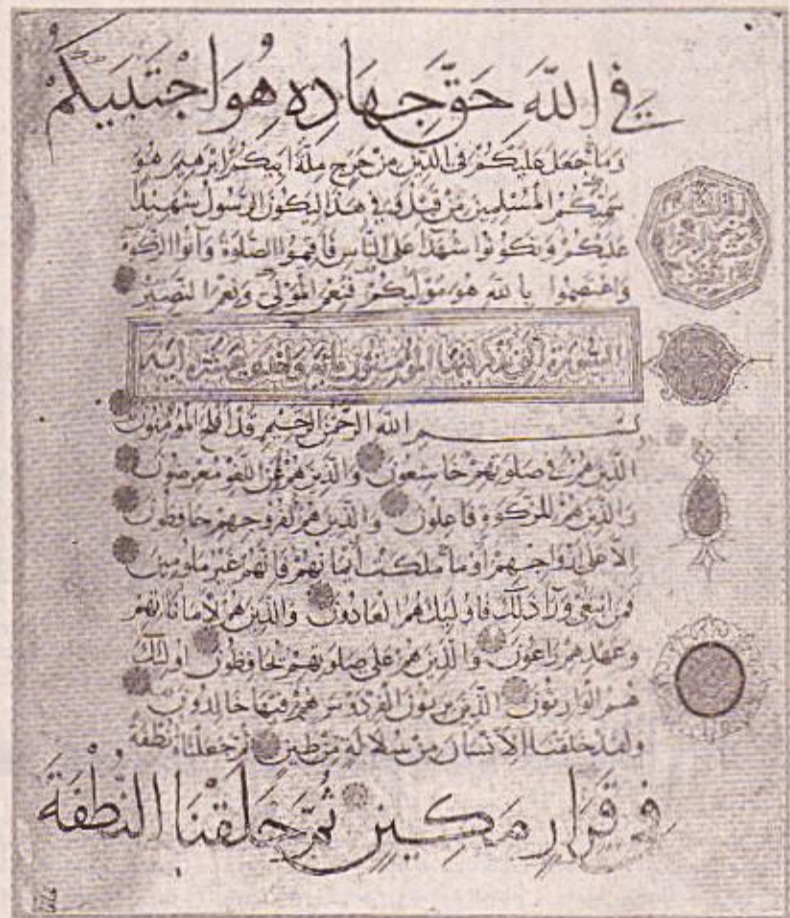 في اللَّهِ حَقَّ جِهَادِهِ هُوَ اجْتَبَيكُمْ
وَمَا جَعَلَ عَلَيْكُمْ فِي الدِّينِ مِنْ حَرَجٍ مِلَّةَ أَبِيكُمْ إِبْرهِيمَ هُوَ
سَمّيكُمُ الْمُسْلِمِينَ مِنْ قَبْلُ وَفِي هَذَا لِيَكُونَ الرَّسُولُ شَهِيدًا
عَلَيْكُمْ وَتَكُونُوا شُهَدَآءَ عَلَى النَّاسِ فَأَقِيمُوا الصَّلوةَ وَآتُوا الزَّكوةَ
وَاعْتَصِمُوا بِاللَّهِ هُوَ مَوْلَيكُمْ فَنِعْمَ الْمَوْلَى وَنِعْمَ النَّصِيرُ
السورة التي يذكر فيها المؤمنون مائة و عشرة آية
بسم اللَّهِ الرَّحْمَنِ الرَّحِيمِ قَدْ أَفْلَحَ الْمُؤْمِنُونَ
الَّذِينَ هُمْ فِي صَلَوتِهِمْ خَاشِعُونَ وَالَّذِينَ هُمْ عَنِ اللَّغْوِ مُعْرِضُونَ
وَالَّذِينَ هُمْ لِلزَّكَوةِ فَاعِلُونَ وَالَّذِينَ هُمْ لِفُرُوجِهِمْ حَافِظُونَ
إِلَّا عَلَى أَزْوَاجِهِمْ أَوْ مَا مَلَكَتْ أَيْمَانُهُمْ فَإِنَّهُمْ غَيْرُ مَلُومِينَ
فَمَنِ ابْتَغَى وَرَآءَ ذَلِكَ فَأُولَئِكَ هُمُ الْعَادُونَ وَالَّذِينَ هُمْ لِأَمَانَاتِهِمْ
وَعَهْدِهِمْ رَاعُونَ وَالَّذِينَ هُمْ عَلَى صَلَوتِهِمْ يُحَافِظُونَ أُولَئِكَ
هُمُ الْوَارِثُونَ الَّذِينَ يَرِثُونَ الْفِرْدَوْسَ هُمْ فِيهَا خَالِدُونَ
وَلَقَدْ خَلَقْنَا الْإِنْسَانَ مِنْ سُلَالَةٍ مِنْ طِينٍ ثُمَّ جَعَلْنَاهُ نُطْفَةً
فِي قَرَارٍ مَكِينٍ ثُمَّ خَلَقْنَا النُّطْفَةَ